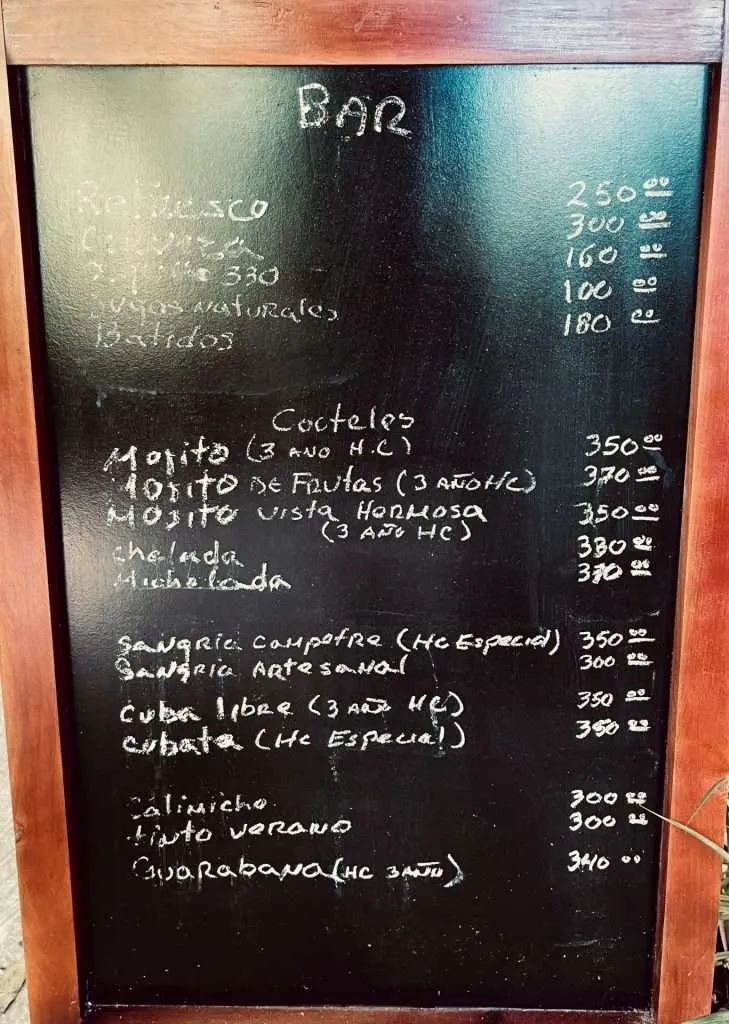 BAR
Refresco 250.00
Cerveza 300.00
330 160.00
Jugos naturales 100.00
Batidos 180.00
Cocteles
Mojito (3 AÑO H.C) 350.00
Mojito DE FRUtas (3 AÑO HC) 370.00
Mojito vista Hermosa 350.00
(3 AÑO HC)
chelada 330.00
Michelada 370.00
Sangria campestre (HC Especial) 350.00
Sangria Artesanal 300.00
Cuba libre (3 AÑO HC) 350.00
Cubata (HC Especial) 350.00
Calimicho 300.00
tinto verano 300.00
Guarabana (HC 3 AÑO) 340.00